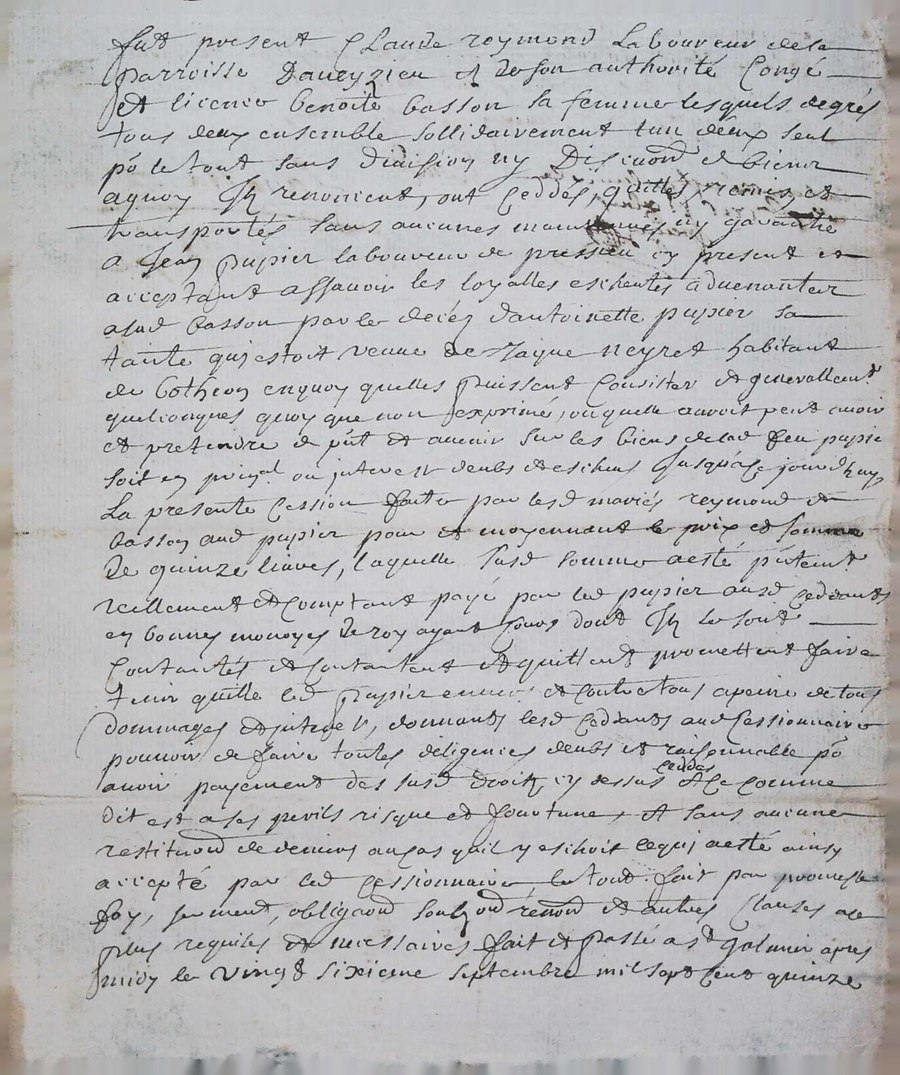 fut present Claude reymond Laboureur de la
parroisse Daveysieu et de son authorité Congé
et licence benoite basson sa femme lesquels de grés
tous deux ensemble sollidairement l'un deux seul
po le tout sans division ny Discuon d biens
a quoy Ils renoncent, ont Ceddés, quittes, remis et
transportés sans aucunes ny garantie
A Jean pupier laboureur de pressieu cy present et
acceptant assavoir les loyalles escheutes advenantes
a lad basson par le decez d'antoinette pupier sa
tante qui estoit veuve de Jaque neyret habitant
de Botheon en quoy quelles puissent Consister et generallemt
quelconques quoy que non exprimé, ou quelle auroit peut avoir
et pretendre de put et avenir sur les biens de lad feu pupier
soit en prinpal ou interest deubs et escheus Jusqua ce jourdhuy
La presente Cession faite par lesd mariés reymond et
basson aud pupier pour et moyennant le prix et somme
De quinze livres, laquelle susd somme a esté putemt
reellement et comptant payé par led pupier ausd Ceddants
en bonnes monoyes De roy ayant Cours dont Ils se sont
Contantés et Contantent et quittent promettent faire
tenir quitte led pupier envers et Contre tous a peine de tous
dommages et interets, donnants lesd Ceddants aud Cessionnaire
pouvoir de faire toutes diligences deubs et raisonnable po
avoir payement des susd droits cy dessus ceddes et Ce Comme
dit est a ses perils risque et fourtune, et sans aucune
restituon de deniers au cas quil y eschoit ce qui a esté ainsy
accepté par led Cessionnaire le tout fait par promesse
foy, serment, obligaon soubzon renon et autres Clauses a ce
plus requises et necessaires fait et passé a st galmier apres
midy le vingt sixieme septembre mil sept Cent quinze